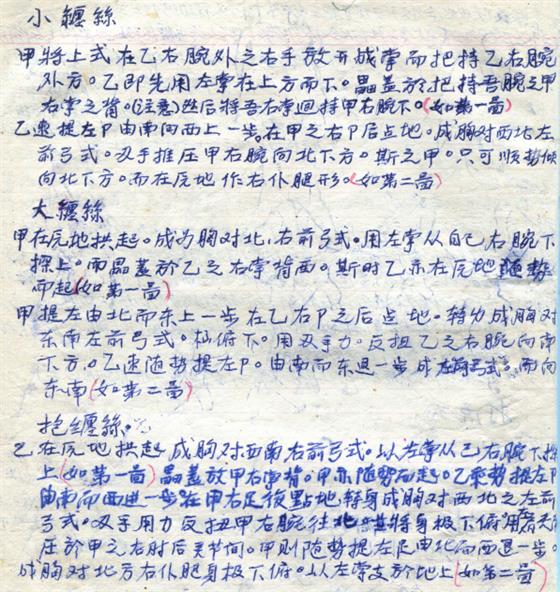 小纏絲
甲將上式在乙右腕外之右手放开成掌而把持乙右腕
外方。乙即先用左掌在上方而下。畾盖於把持吾腕之甲
右掌之背。(注意)然后將吾右掌迴持甲右腕下。(如第一畾)
乙速提左P由南向西上一步。在甲之右P后点地。成胸对西北左
前弓式。双手推压甲右腕向北下方。斯之甲。只可順势倾
向北下方。而在原地作右仆腿形。(如第二畾)
大纏絲
甲在原地拱起。成为胸对北,右前弓式。用左掌从自己右腕下
探上。而畾盖於乙之右掌背面。斯时乙亦在原地随势
而起(如第一畾)
甲提左由北而东上一步在乙右P之后点地。轉为成胸对
东南左前弓式。俯下。用双手力。反扭乙之右腕向南
下方。乙速随势提左P。由南而东退一步成 而向
东南(如第二畾)
抱纏絲。
乙在原地拱起成胸对西南右前弓式。以左掌从己右腕下探
上(如第一畾)畾盖放甲右掌背。甲亦随势而起。乙乘势提左P
由南而西进一步在甲右足後點地轉身成胸对西北之左前
弓式。双手用力反扭甲右腕往北 將身极下俯用
压於甲之右肘后关节间。甲则随势提左足由北而西退一步。
成胸对北方右仆腿身极下俯。以左掌支於地上(如第二畾)